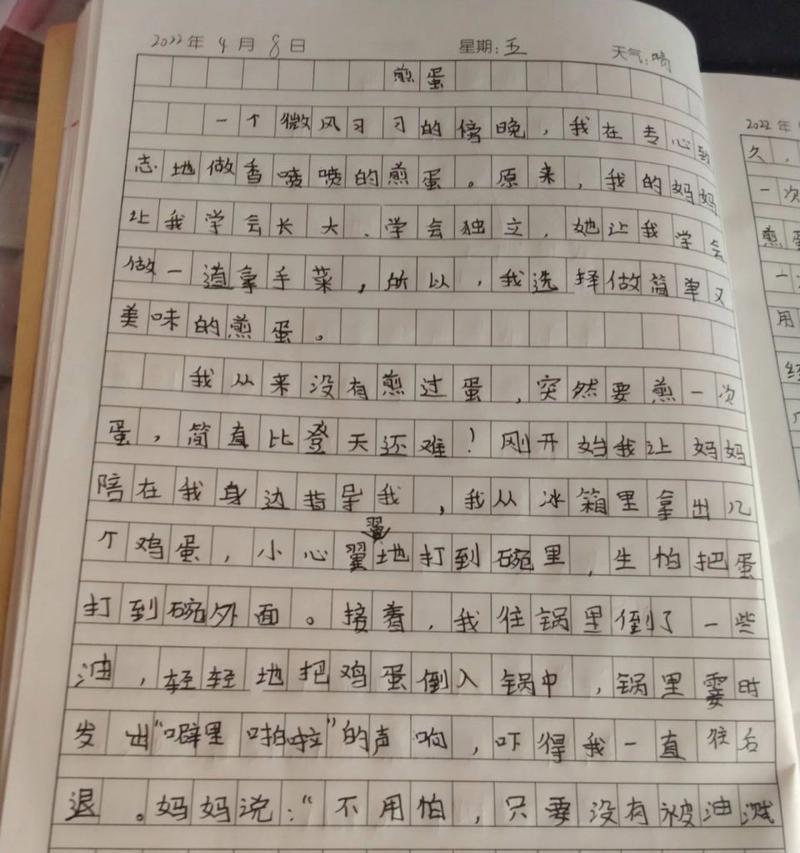 2022年4月8日 星期:五 天气:晴
煎蛋
一个微风习习的傍晚，我在专心致
志地做香喷喷的煎蛋。原来，我的妈妈
让我学会长大、学会独立，她让我学会
做一道拿手菜，所以，我选择做简单又
美味的煎蛋。
我从来没有煎过蛋，突然要煎一次
蛋，简直比登天还难！刚开始我让妈妈
陪在我身边指导我，我从冰箱里拿出几
个鸡蛋，小心翼翼地打到碗里，生怕把蛋
打到碗外面。接着，我往锅里倒了一些
油，轻轻地把鸡蛋倒入锅中，锅里霎时
发出“噼里啪啦”的声响，吓得我一直往后
退。妈妈说：“不用怕，只要没有被油溅
2022年
久，
一次
煎蛋
一
用
经